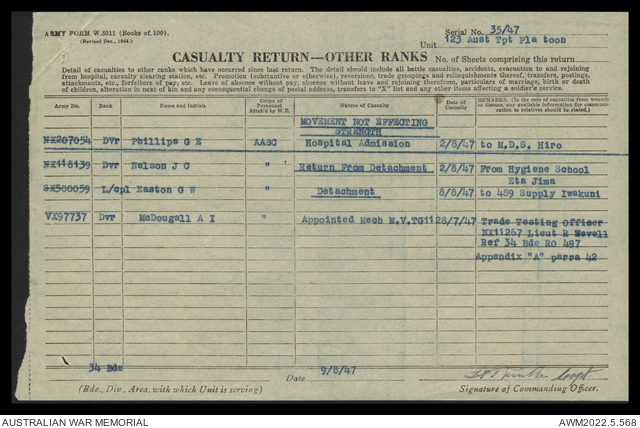 ARMY FORM W.3011 (Books of.100).
(Revised Dec., 1944.)
Serial No. 35/47
Unit 123 Aust Tpt Pla toon
CASUALTY RETURN—OTHER RANKS No. of Sheets comprising this return
Detail of casualties to other ranks which have occurred since last return. The detail should include all battle casualties, accidents, evacuation to and rejoining
from hospital, casualty clearing station, etc. Promotion (substantive or otherwise), reversions, trade groupings and relinquishments thereof, transfers, postings,
attachments, etc., forfeiture of pay, etc. Leave of absence without pay, absence without leave and rejoining therefrom, particulars of marriage, birth or death
of children, alteration in next of kin and any consequential change of postal address, transfers to "X" list and any other items affecting a soldier's service.
Army No. Rank Name and Initials Corps of Personnel Attch'd by W.E. Nature of Casualty Date of Casualty REMARKS. (In the case of casualties from wounds or disease, any available information for communication to relatives should be stated.)
MOVEMENT NOT EFFECTING
STRENGTH
NX207054 Dvr Phillips G E AASC Hospital Admission 2/8/47 to M.D.S. Hiro
NX118139 Dvr Nelson J C " Return From Detachment 2/8/47 From Hygiene School
Eta Jima
SX500059 L/cpl Easton G W " Detachment 8/8/47 to 489 Supply Iwakuni
VX97737 Dvr McDougall A I " Appointed Mech M.V.TG11 28/7/47 Trade Testing Officer
NX11267 Lieut R Nevell
Ref 34 Bde RO 497
Appendix "A" parra 42
34 Bde
(Bde., Div., Area, with which Unit is serving)
Date 9/8/47
Capt
Signature of Commanding Officer.
AUSTRALIAN WAR MEMORIAL
AWM2022.5.568